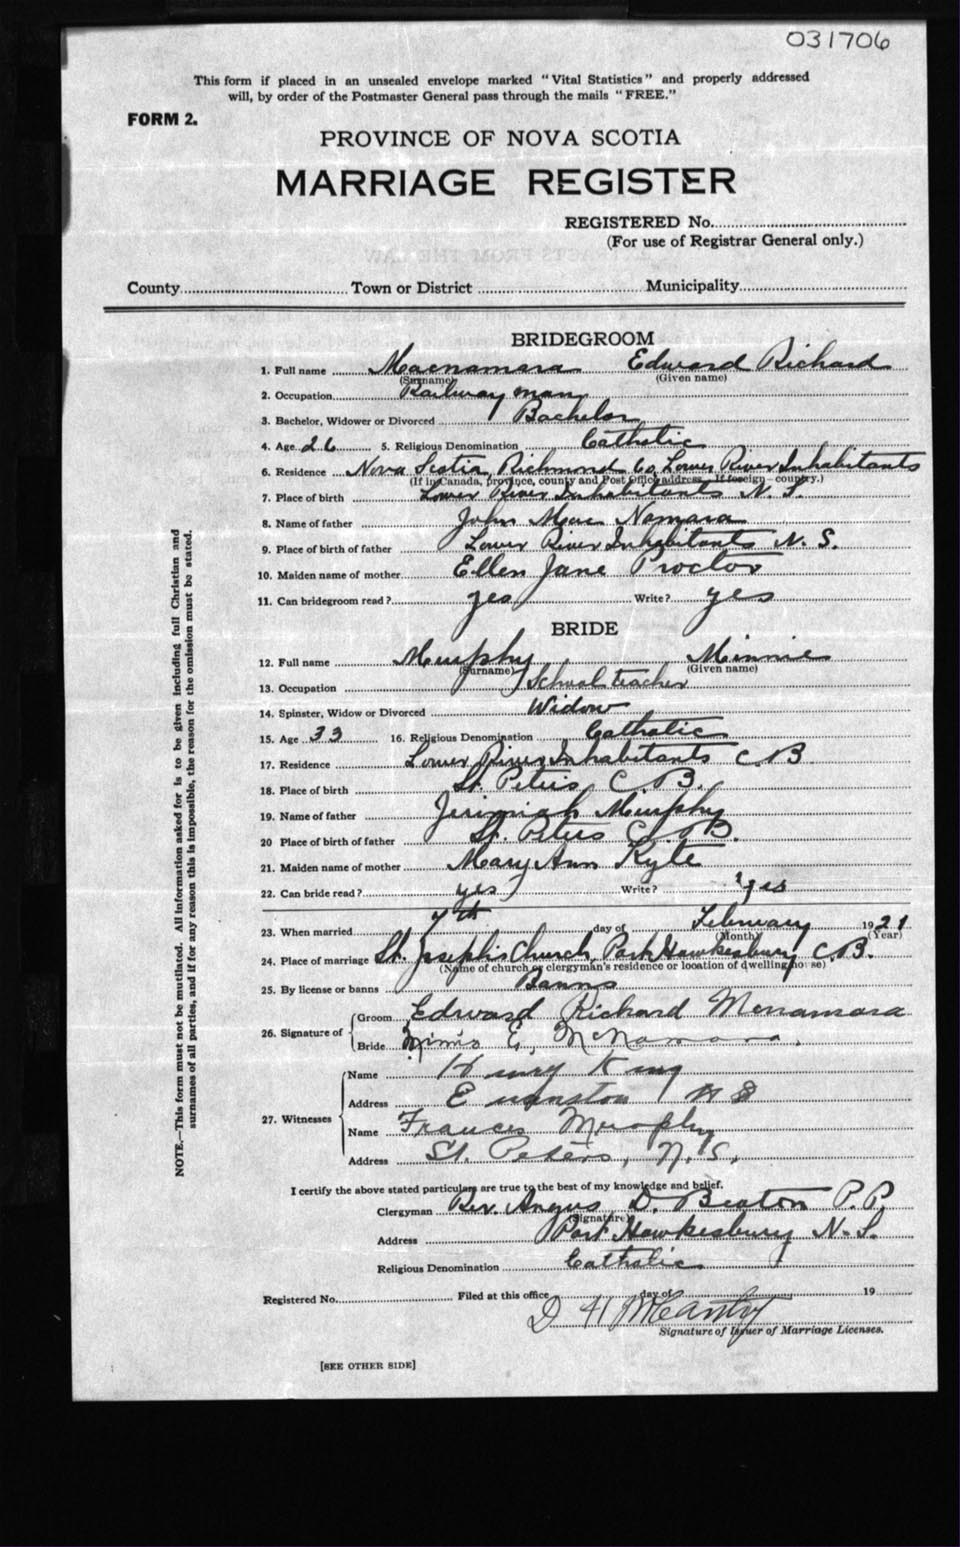 031706
This form if placed in an unsealed envelope marked "Vital Statistics" and properly addressed
will, by order of the Postmaster General pass through the mails "FREE."
FORM 2.
PROVINCE OF NOVA SCOTIA
MARRIAGE REGISTER
REGISTERED No.
(For use of Registrar General only.)
County Town or District Municipality
BRIDEGROOM
1. Full name Macnamara Edward Richard
(Surname) (Given name)
2. Occupation Railway man
3. Bachelor, Widower or Divorced Bachelor
4. Age 26 5. Religious Denomination Catholic
6. Residence Nova Scotia, Richmond Co, Lower River Inhabitants
(If in Canada, province, county and Post Office address. If foreign—country.)
7. Place of birth Lower River Inhabitants N. S.
8. Name of father John Mac Namara
9. Place of birth of father Lower River Inhabitants N. S.
10. Maiden name of mother Ellen Jane Proctor
11. Can bridegroom read? yes Write? yes
BRIDE
12. Full name Murphy Minnie
(Surname) (Given name)
13. Occupation School teacher
14. Spinster, Widow or Divorced Widow
15. Age 33 16. Religious Denomination Catholic
17. Residence Lower River Inhabitants C. B
18. Place of birth St. Peters C. B.
19. Name of father Jerimiah Murphy
20 Place of birth of father St. Peters C. B.
21. Maiden name of mother Mary Ann Kyte
22. Can bride read? yes Write? yes
23. When married 7th day of February 1921
(Month) (Year)
24. Place of marriage St. Joseph's Church, Port Hawkesbury C. B.
(Name of church or clergyman's residence or location of dwelling house)
25. By license or banns Banns
26. Signature of Groom Edward Richard McNamara
Bride E. McNamara.
27. Witnesses
Name Henry King
Address
Name Frances Murphy
Address St. Peters, N. S.
I certify the above stated particulars are true to the best of my knowledge and belief.
Clergyman Rev. Angus D. Beaton P. P.
(Signature)
Address Port Hawkesbury N. S.
Religious Denomination Catholic
Registered No. Filed at this office day of 19
D
Signature of Issuer of Marriage Licenses.
[SEE OTHER SIDE]
NOTE.—This form must not be mutilated. All information asked for is to be given including full Christian and
surnames of all parties, and if for any reason this is impossible, the reason for the omission must be stated.